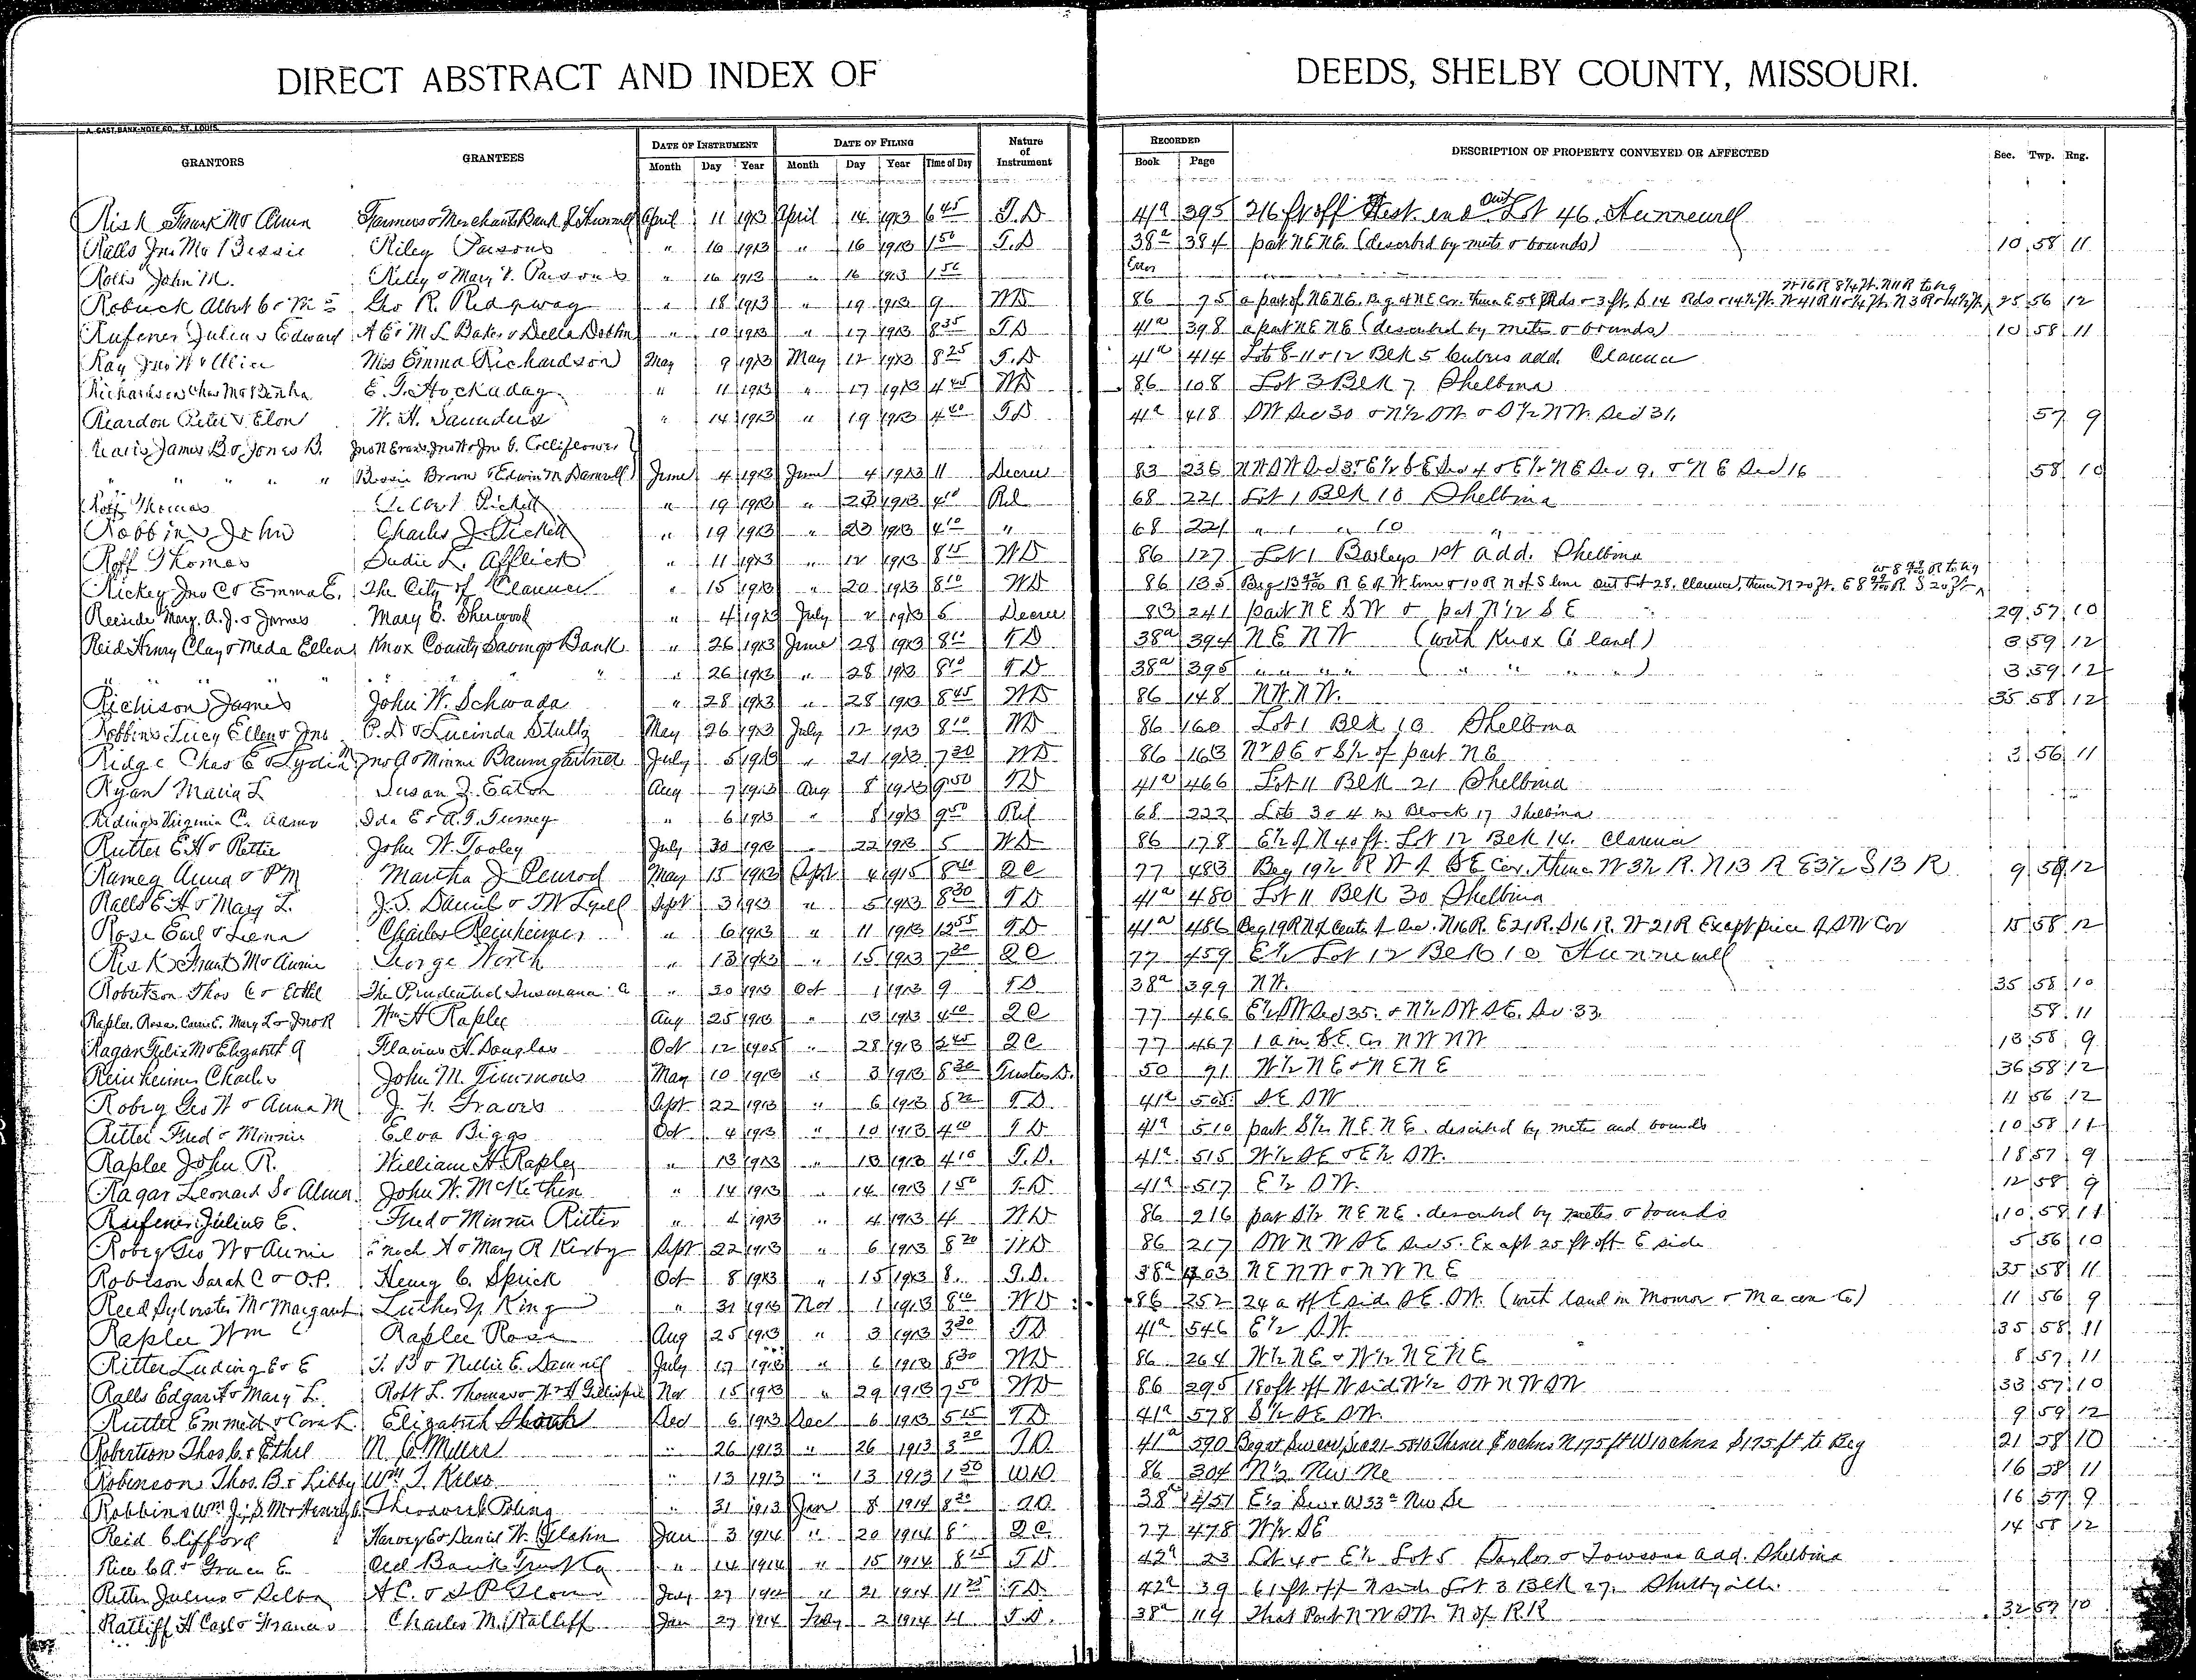 DIRECT ABSTRACT AND INDEX OF DEEDS, SHELBY COUNTY, MISSOURI.
A. GAST BANK NOTE CO., ST. LOUIS.
GRANTORS GRANTEES DATE OF INSTRUMENT DATE OF FILING Nature of Instrument RECORDED DESCRIPTION OF PROPERTY CONVEYED OR AFFECTED Sec. Twp. Rng.
Month Day Year Month Day Year Time of Day Book Page
Risk Frank M & Farmers & Merchants Bank April 11 1913 April 14 1913 6 45 T.D 41a 395 216 ft off West end Out Lot 46 Hunnewell
Ralls Jno M & Bessie Riley Parsons " 16 1913 " 16 1913 1 50 T.D 38a 384 part NENE (described by mets & bounds) 10 58 11
Ralls John M. Riley & Mary V. Parsons " 16 1913 " 16 1913 1 50 Error
Robuck Albert Geo R. Ridgway " 18 1913 " 19 1913 9 WD 86 75 a part of NENE. Beg at NE Cor. 25 56 12
Rufener Julius Edward A E & M L Baker & Della " 10 1913 " 17 1913 8 35 T.D 41a 398 a part NE NE (described by metes & bounds) 10 58 11
Ray Jno W & Allie Miss Emma Richardson May 9 1913 May 12 1913 8 25 T.D 41a 414 Lots 8-11 & 12 Blk 5 add. Clarence
Richardson Chas M & Bertha E. T. Hockaday " 11 1913 " 17 1913 4 45 WD 86 108 Lot 3 Blk 7 Shelbina
Reardon Peter & Elon W. H. Saunders " 14 1913 " 19 1913 4 40 T.D 41a 418 SW Sec 30 & N½ SW & S½ NW Sec 31. 57 9
James B & Jones B. Jno N Evans, Jno H & Jno G. Colliflower
" " " " " Bessie Brown & Edwin M Damrell June 4 1913 June 4 1913 11 Decree 83 236 NWSW Sec 3 & E½ SE Sec 4 & E½ NE Sec 9, & NE Sec 16 58 10
Roff Thomas Pickett " 19 1913 " 23 1913 4 10 Rel 68 221 Lot 1 Blk 10 Shelbina
Robbins John Charles J. Pickett " 19 1913 " 23 1913 4 10 " 68 221 " 1 " 10 "
Roff Thomas Sudie L. Afflick " 11 1913 " 12 1913 8 15 WD 86 127 Lot 1 Baileys 1st add. Shelbina
Rickey Jno C & Emma E. The City of Clarence " 15 1913 " 20 1913 8 10 WD 86 135 Beg R E of W line & 10 R N of S line Out Lot 28. Clarence, thence N 20 ft.
Reeside Mary. A. J. & James Mary E. Sherwood " 4 1913 July 2 1913 5 Decree 83 241 part NE SW & part N½ SE 29 57 10
Reid Henry Clay & Meda Ellen Knox County Savings Bank " 26 1913 June 28 1913 8 10 T.D 38a 394 NE NW (with Knox Co land) 3 59 12
" " " " 26 1913 " 28 1913 8 10 T.D 38a 395 " " " " ( " " " " ) 3 59 12
Richison James John W. Schwada " 28 1913 " 28 1913 8 45 WD 86 148 NW NW. 35 58 12
Robbins Lucy Ellen & Jno P. D. & Lucinda Stultz May 26 1913 July 12 1913 8 10 WD 86 160 Lot 1 Blk 10 Shelbina
Ridge Chas E & Lydia M Jno A & Minnie Baumgartner July 5 1913 " 21 1913 7 30 WD 86 163 N½ SE & S½ of part NE 3 56 11
Ryan Maria L Susan Z. Eaton Aug 7 1913 Aug 8 1913 9 50 T.D 41a 466 Lot 11 Blk 21 Shelbina
Ridings Virginia C. Ida E & A. T. Turney " 6 1913 " 8 1913 9 50 Rel 68 222 Lots 3 & 4 in Block 17 Shelbina
Rutter E H & Rettie John W. Tooley July 30 1913 " 22 1913 5 WD 86 178 E½ of N 40 ft. Lot 12 Blk 14. Clarence
Ramey Anna & P M Martha J Penrod May 15 1913 Sept 4 1915 8 40 QC 77 483 Beg 19½ R W of SE Cor. thence W 3½ R. N 13 R E 3½ S 13 R 9 58 12
Ralls E H & Mary L. J. S. Daniel & T W Lyell Sept 3 1913 " 5 1913 8 30 T.D 41a 480 Lot 11 Blk 30 Shelbina
Rose Earl & Lena Charles Reinheimer " 6 1913 " 11 1913 12 55 T.D 41a 486 Beg 19 R N of Cent. of Sec. N 16 R. E 21 R. S 16 R. W 21 R Except piece of SW Cor 15 58 12
Risk Frank M & Annie George North " 13 1913 " 15 1913 7 30 QC 77 459 E½ Lot 12 Blk 10 Hunnewell
Robertson Thos C & Ethel The Prudential Insurance Co " 30 1913 Oct 1 1913 9 T.D. 38a 399 NW. 35 58 10
Raplee, Rosa, Carrie E. Mary L & Jno R Wm H Raplee Aug 25 1913 " 13 1913 4 10 QC 77 466 E½ SW Sec 35. & N½ SW SE. Sec 33 58 11
Ragar Felix M & Elizabeth A Flavius H. Douglas Oct 12 1905 " 28 1913 2 45 QC 77 467 1 a in SE. Cor NW NW 13 58 9
Reinheimer Charles John M. Timmons May 10 1913 " 3 1913 8 30 Trustees D. 50 91 W½ NE & NENE 36 58 12
Robey Geo W & Anna M J. F. Graves Sept 22 1913 " 6 1913 8 20 T.D. 41a 505 SE SW 11 56 12
Ritter Fred & Minnie Elva Biggs Oct 4 1913 " 10 1913 4 10 T.D 41a 510 part S½ NE NE. described by metes and bounds 10 58 11
Raplee John R. William H. Raplee " 13 1913 " 13 1913 4 10 T.D. 41a 515 W½ SE & E½ SW. 18 57 9
Ragar Leonard S & Alma John W. McKethen " 14 1913 " 14 1913 1 50 T.D. 41a 517 E½ SW. 12 58 9
Rufener Julius E. Fred & Minnie Ritter " 4 1913 " 4 1913 4 WD 86 216 part S½ NE NE. described by metes & bounds 10 58 11
Robey Geo W & Annie Enoch H & Mary R Kirby Sept 22 1913 " 6 1913 8 20 WD 86 217 SW NW SE Sec 5. Except 25 ft off E side 5 56 10
Robison Sarah C & O.P. Henry C. Sprick Oct 8 1913 " 15 1913 8. T.D. 38a 403 NE NW & NW NE 35 58 11
Reed Sylvester M & Margaret Luther Y. King " 31 1913 Nov 1 1913 8 10 WD 86 252 24 a off E side SE. SW. (with land in Monroe & Macon Co) 11 56 9
Raplee Wm C Raplee Rosa Aug 25 1913 " 3 1913 3 30 T.D 41a 546 E½ SW 35 58 11
Ritter Luding E & E T. B & Nellie E. Damrell July 17 1913 " 6 1913 8 30 WD 86 264 W½ NE & W½ NENE 8 57 11
Ralls Edgar H & Mary L. Robt L. Thomas & W H Gillispie Nov 15 1913 " 29 1913 7 50 WD 86 295 180 ft off W side W½ SW NW SW 33 57 10
Rutter Emmett & Cora L. Elizabeth Dec 6 1913 Dec 6 1913 5 15 T.D 41a 578 S½ SE SW. 9 59 12
Robertson Thos C. & Ethel M. C. Miller " 26 1913 " 26 1913 3 20 T.D 41a 590 Beg at Sw cor Sec 21-58-10 Thence E 10 chns N 175 ft W 10 chns S 175 ft to Beg 21 58 10
Robinson Thos. B & Libby Wm. T. " 13 1913 " 13 1913 1 50 WD 86 304 N½ Nw Ne 16 58 11
Robbins Wm J; S. M & Henry C. Theodore Poling " 31 1913 Jan 8 1914 8 20 38a 451 E½ Sw & W 33a Nw Se 16 57 9
Reid Clifford Harvey E & Daniel W. Glahn Jan 3 1914 " 20 1914 8 QC 77 478 W½ SE 14 58 12
Rice C A & Grace E. Old Bank Trust Co " 14 1914 " 15 1914 8 15 T.D 42a 23 Lot 4 & E½ Lot 5 Taylor & Towsons add. Shelbina
Ritter Julius & Delba A C. & July 27 " 21 1914 11 25 T.D. 42a 39 61 ft off N side Lot 3 Blk 27. Shelbyville.
Ratliff H Carl & Frances Charles M. Ratliff Jan 27 1914 Feby 2 1914 11 T.D. 38a 119 That Part NW SW. N of R.R 32 57 10